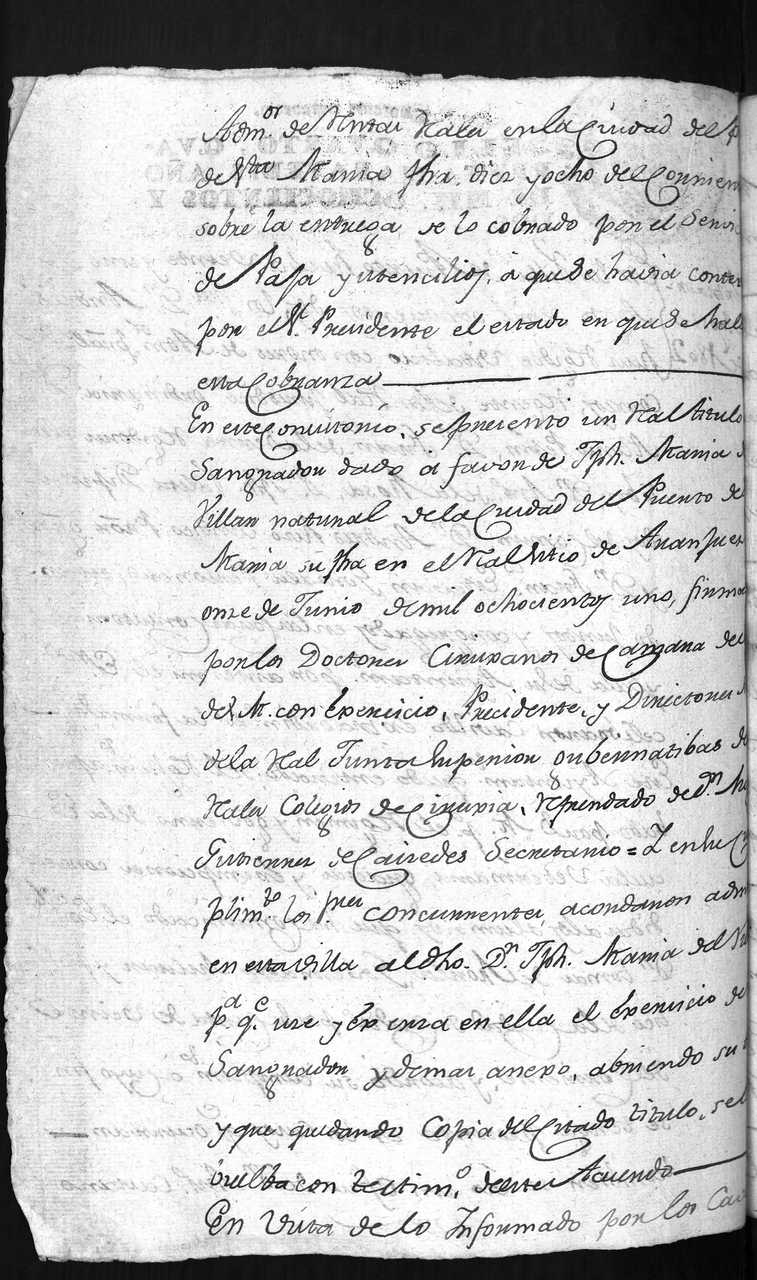 Adm.or de Rentas Rales en la Ciudad del P
de Sta Maria fha. diez y ocho del Corrien
sobre la entrega de lo cobrado por el Servi
de Paja y Utencilios, á que se havia contes
por el Sr. Precidente el estado en que se hall
esta Cobranza
En este Concistorio, se precento un Real titulo
Sangrador dado á favor de Jph. Maria d
Villar natural de la Ciudad del Puerto de
Maria su fha en el Real Sitio de Aranjuez
onze de Junio de mil ochocientos uno, firma
por los Doctores Cirujanos de Camara de
de S. M. con Exercicio, Precidente, y Directores
de la Real Junta Superior Gubernatibas de
Rales Colegios de Cirugia, Refrendado de Dn
Gutierrez de Caviedes Secretario = Y en su C
plim.to los S.res concurrentes acordaron adm
en esta Villa al dho. Dn. Jph. Maria del Vill
p.a q.e use y Exerza en ella el Exercicio de
Sangrador y demas anexo, abriendo su t
y que quedando Copia del Citado titulo, se le
buelba con testim.o de este Acuerdo
En Vista de lo Informado por los Cav